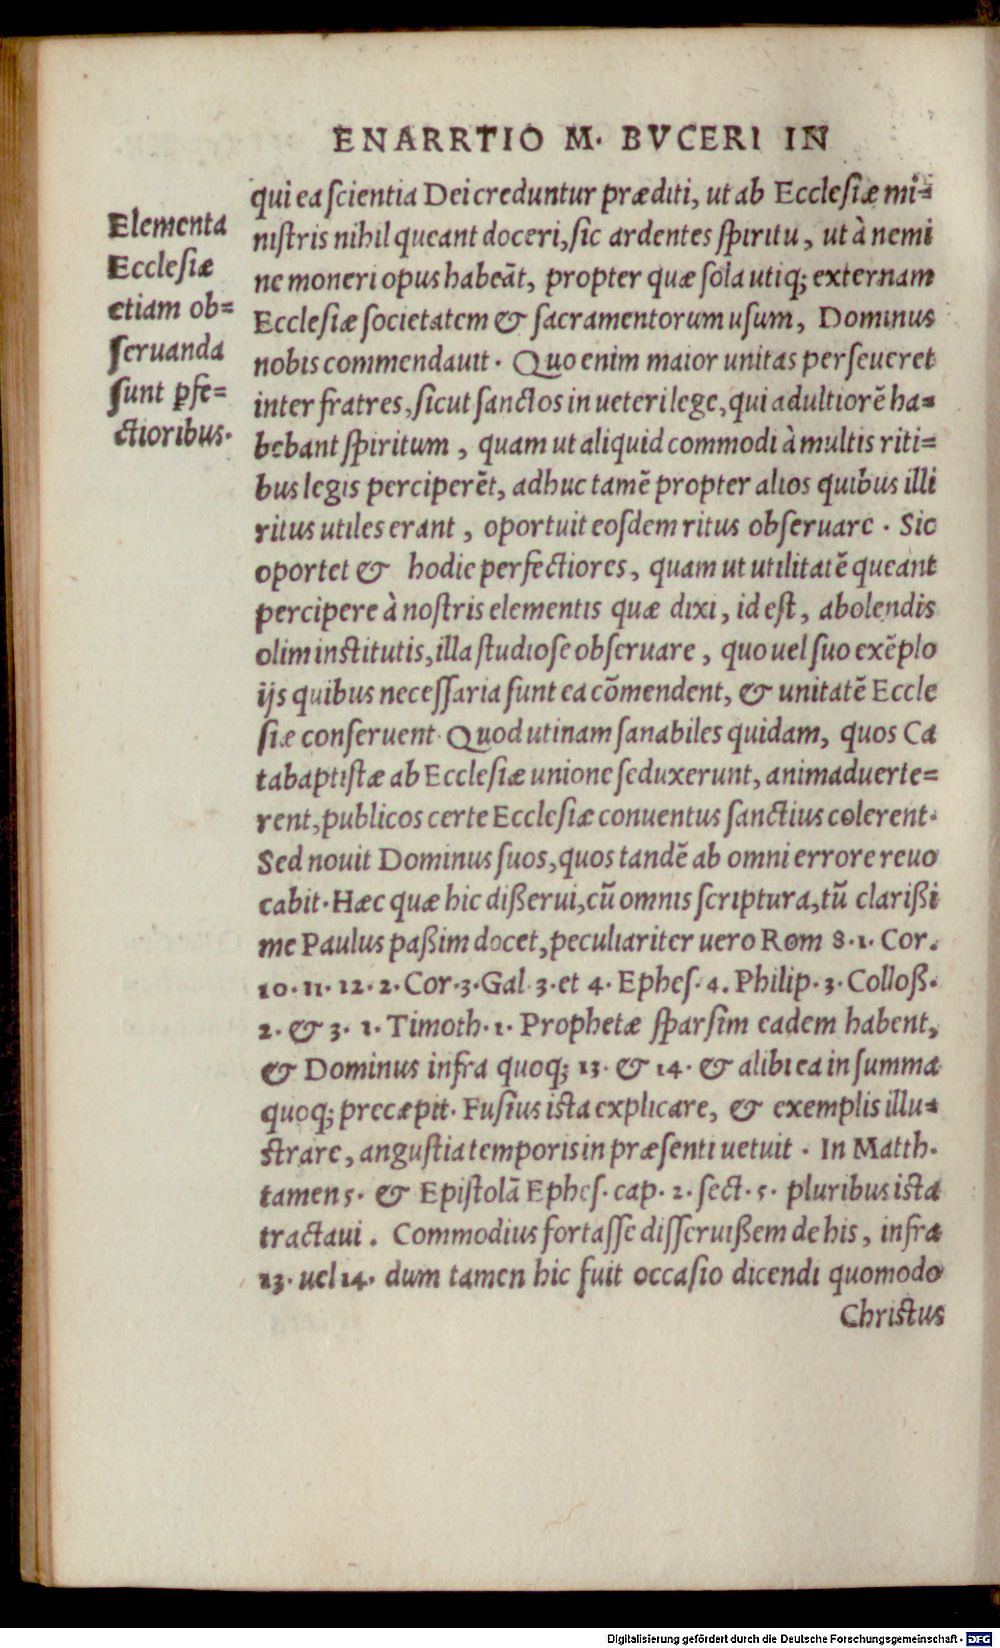 ENARRTIO M. BVCERI IN
qui ea ſcientia Dei creduntur præditi, ut ab Eccleſiæ mi=
niſtris nihil queant doceri, ſic ardentes ſpiritu, ut à nemi
ne moneri opus habeāt, propter quæ ſola utiq; externam
Eccleſiæ ſocietatem & ſacramentorum uſum, Dominus
nobis commendauit. Quo enim maior unitas perſeueret
inter fratres, ſicut ſanctos in ueteri lege, qui adultiorē ha=
bebant ſpiritum, quam ut aliquid commodi à multis riti=
bus legis perciperēt, adhuc tamē propter alios quibus illi
ritus utiles erant, oportuit eoſdem ritus obſeruare. Sic
oportet & hodie perfectiores, quam ut utilitatē queant
percipere à noſtris elementis quæ dixi, id eſt, abolendis
olim inſtitutis, illa ſtudioſe obſeruare, quo uel ſuo exēplo
ijs quibus neceſſaria ſunt ea cōmendent, & unitatē Eccle
ſiæ conſeruent. Quod utinam ſanabiles quidam, quos Ca
tabaptiſtæ ab Eccleſiæ unione ſeduxerunt, animaduerte=
rent, publicos certe Eccleſiæ conuentus ſanctius colerent.
Sed nouit Dominus ſuos, quos tandē ab omni errore reuo
cabit. Hæc quæ hic dißerui, cū omnis ſcriptura, tū clarißi
me Paulus paßim docet, peculiariter uero Rom 8. 1. Cor.
10. 11. 12. 2. Cor. 3. Gal. 3. et 4. Epheſ. 4. Philip. 3. Colloß.
2. & 3. 1. Timoth. 1. Prophetæ ſparſim eadem habent,
& Dominus infra quoq; 13. & 14. & alibi ea in ſumma
quoq; precæpit. Fuſius iſta explicare, & exemplis illu=
ſtrare, anguſtia temporis in præſenti uetuit. In Matth.
tamen 5. & Epiſtolā Epheſ. cap. 2. ſect. 5. pluribus iſta
tractaui. Commodius fortaſſe diſſeruißem de his, infra
13. uel 14. dum tamen hic fuit occaſio dicendi quomodo
Christus
Elementa
Eccleſiæ
etiam ob=
ſeruanda
ſunt ꝑfe=
ctioribus.
Digitalisierung gefördert durch die Deutsche Forschungsgemeinschaft - DFG